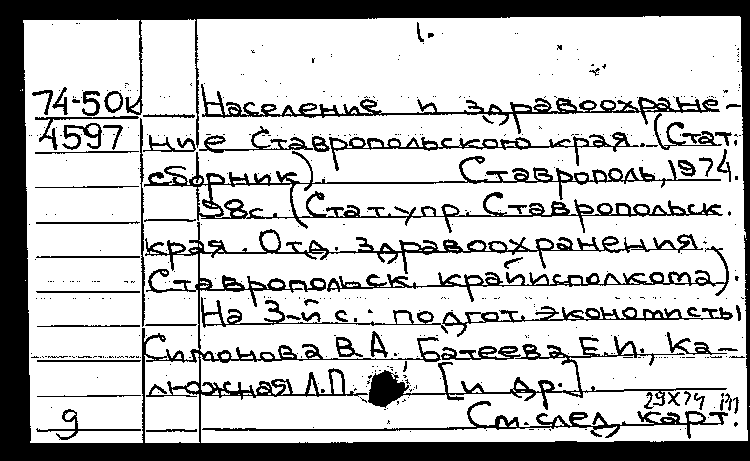 1.
74-50к Население и здравоохране-
4597 ние Ставропольского края. (Стат.
сборник). Ставрополь, 1974.
98с. (Стат. упр. Ставропольск.
края. Отд. здравоохранения
Ставропольск. крайисполкома).
На 3-й с.: подгот. экономисты
Симонова В.А. Батеева Е.И., Ка-
люжная Л.П. [и др.].
29X74
9 См. след. карт.